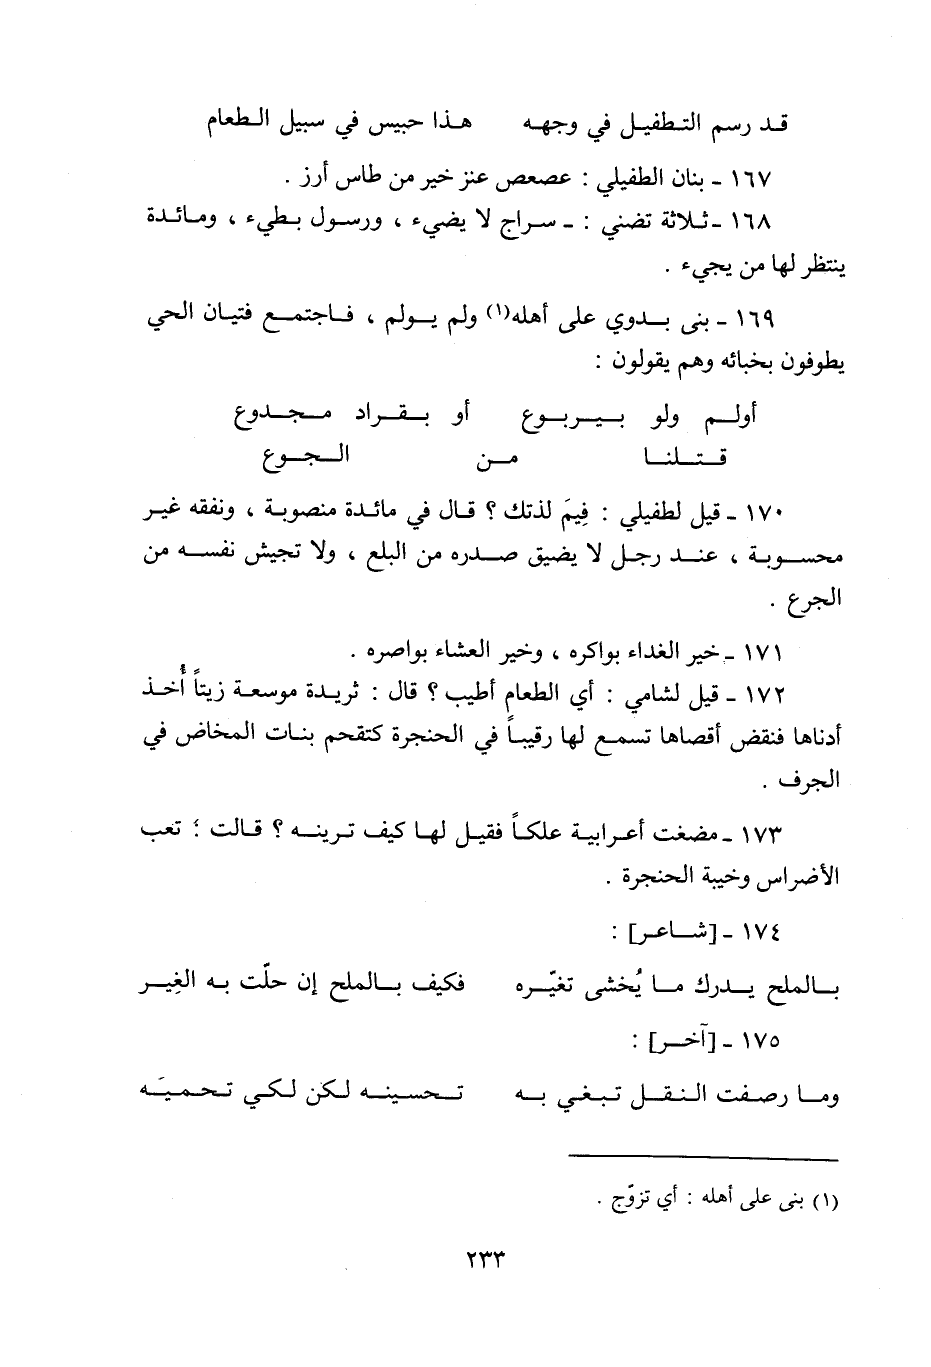 قد رسم التطفيل في وجهه هذا حبيس في سبيل الطعام
١٦٧ - بنان الطفيلي : عصعص عنز خير من طاس أرز .
١٦٨ - ثلاثة تضني : - سراج لا يضيء ، ورسول بطيء ، ومائدة
ينتظر لها من يجيء .
١٦٩ - بنى بدوي على أهله(١) ولم يولم ، فاجتمع فتيان الحي
يطوفون بخبائه وهم يقولون :
أولم ولو بيربوع أو بقراد مجدوع
قتلنا من الجوع
١٧٠ - قيل لطفيلي : فِيمَ لذتك ؟ قال في مائدة منصوبة ، ونفقه غير
محسوبة ، عند رجل لا يضيق صدره من البلع ، ولا تجيش نفسه من
الجرع .
١٧١ - خير الغداء بواكره ، وخير العشاء بواصره .
١٧٢ - قيل لشامي : أي الطعام أطيب ؟ قال : ثريدة موسعة زيتاً أُخذ
أدناها فنقض أقصاها تسمع لها رقيباً في الحنجرة كتقحم بنات المخاض في
الجرف .
١٧٣ - مضغت أعرابية علكاً فقيل لها كيف ترينه ؟ قالت : تعب
الأضراس وخيبة الحنجرة .
١٧٤ - [شاعر] :
بالملح يدرك ما يُخشى تغيّره فكيف بالملح إن حلّت به الغِير
١٧٥ - [آخر] :
وما رصفت النقل تبغي به تحسينه لكن لكي تحميَه
(١) بنى على أهله : أي تزوّج .
٢٣٣